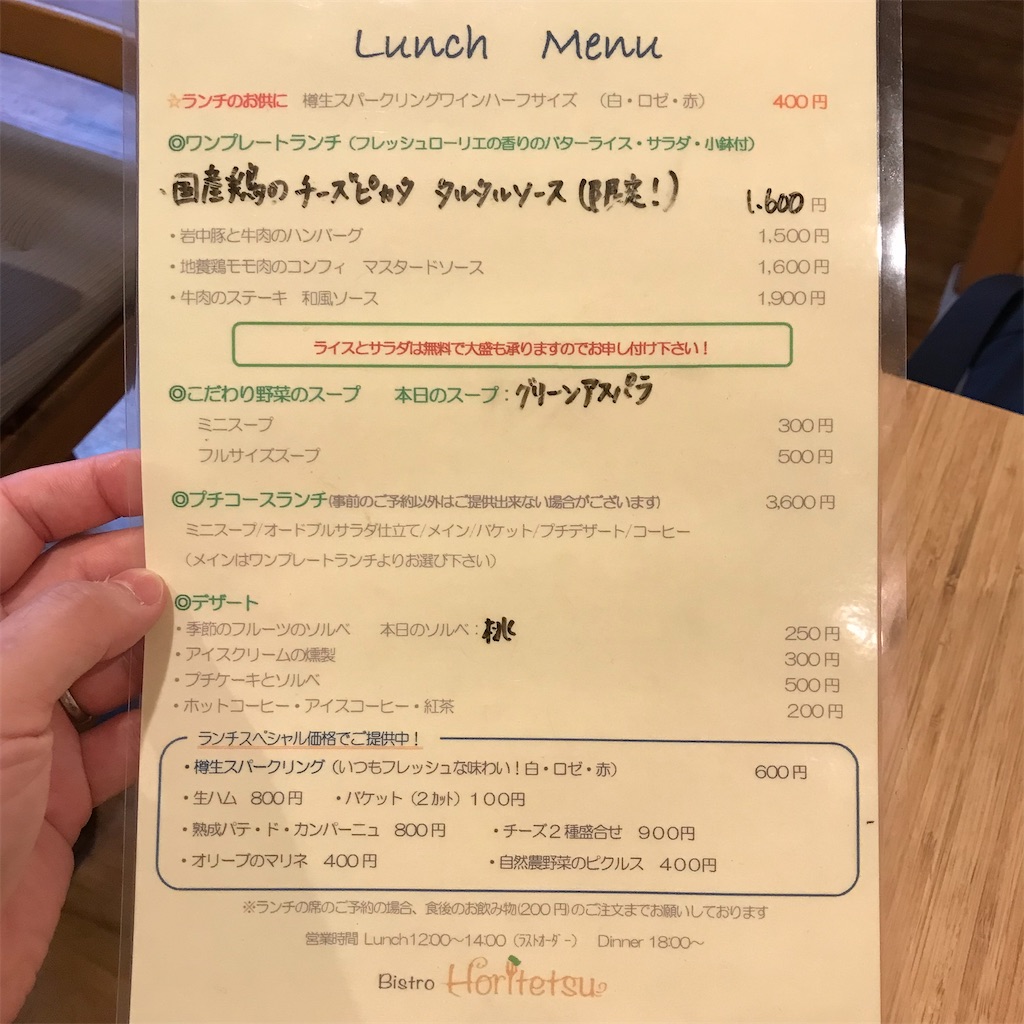 Lunch Menu
☆ランチのお供に 樽生スパークリングワインハーフサイズ （白・ロゼ・赤） 400円
◎ワンプレートランチ（フレッシュローリエの香りのバターライス・サラダ・小鉢付）
・国産鶏のチーズピカタ タルタルソース（限定！） 1,600円
・岩中豚と牛肉のハンバーグ 1,500円
・地養鶏モモ肉のコンフィ マスタードソース 1,600円
・牛肉のステーキ 和風ソース 1,900円
ライスとサラダは無料で大盛も承りますのでお申し付け下さい！
◎こだわり野菜のスープ 本日のスープ：グリーンアスパラ
ミニスープ 300円
フルサイズスープ 500円
◎プチコースランチ(事前のご予約以外はご提供出来ない場合がございます) 3,600円
ミニスープ/オードブルサラダ仕立て/メイン/バケット/プチデザート/コーヒー
（メインはワンプレートランチよりお選び下さい）
◎デザート
・季節のフルーツのソルベ 本日のソルベ：桃 250円
・アイスクリームの燻製 300円
・プチケーキとソルベ 500円
・ホットコーヒー・アイスコーヒー・紅茶 200円
ランチスペシャル価格でご提供中！
・樽生スパークリング（いつもフレッシュな味わい！白・ロゼ・赤） 600円
・生ハム 800円 ・バケット（2カット）100円
・熟成パテ・ド・カンパーニュ 800円 ・チーズ2種盛合せ 900円
・オリーブのマリネ 400円 ・自然農野菜のピクルス 400円
※ランチの席のご予約の場合、食後のお飲み物(200円)のご注文までお願いしております
営業時間 Lunch12:00～14:00（ラストオーダー） Dinner 18:00～
Bistro Horitetsu